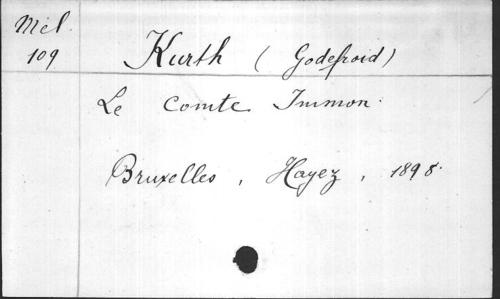 Mél.
109
Kurth (Godefroid)
Le Comte Immon.
Bruxelles, Hayez, 1898.